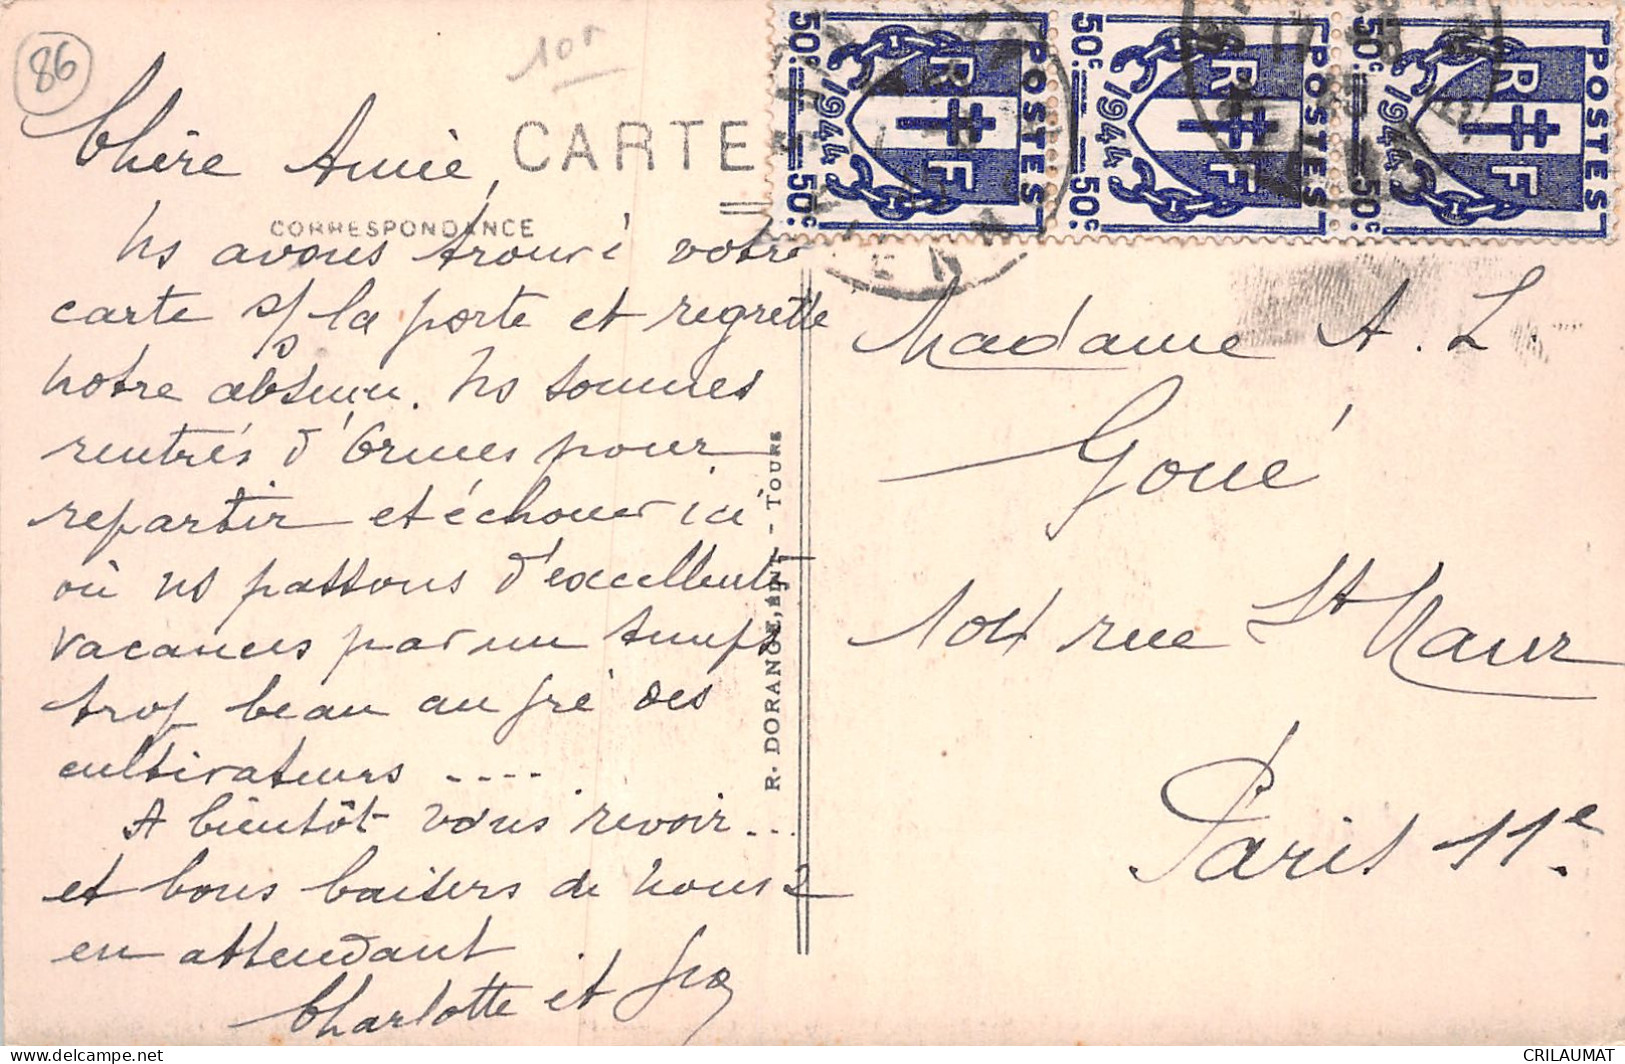 86
10F
CARTE
CORRESPONDANCE
Chère Amie,
Ns avons trouvé votre
carte s/ la porte et regrette
notre absence. Ns sommes
rentrés d'Ormes pour
repartir et échouer ici
où ns passons d'excellentes
vacances par un temps
trop beau au gré des
cultivateurs ....
A bientôt vous revoir...
et bons baisers de nous 2
en attendant
Charlotte et
R. DORANGE, ÉDIT. - TOURS
POSTES RF 1944 50c 50c
POSTES RF 1944 50c 50c
POSTES RF 1944 50c 50c
Madame A. L.
Goué
104 rue St Maur
Paris 11e
CRILAUMAT